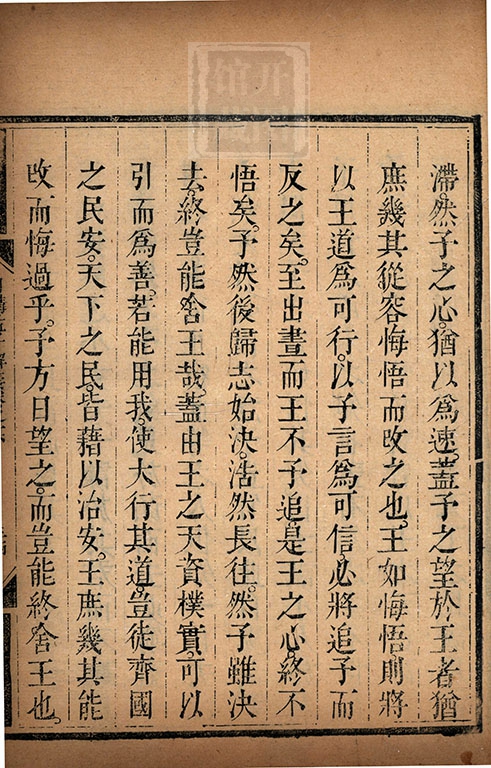 滯然予之心猶以爲速蓋予之望於王者猶
庶幾其從容悔悟而改之也王如悔悟則將
以王道爲可行以予言爲可信必將追予而
反之矣至出晝而王不予追是王之心終不
悟矣予然後歸志始決浩然長往然予雖決
去終豈能舍王哉蓋由王之天資樸實可以
引而爲善若能用我使大行其道豈徒齊國
之民安天下之民皆藉以治安王庶幾其能
改而悔過乎予方日望之而豈能終舍王也